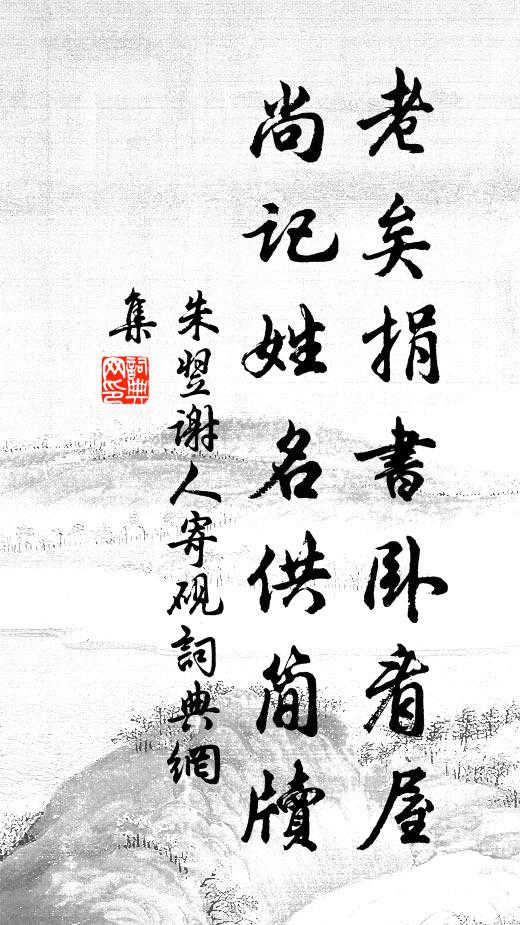 老矣捐書卧看屋
尚記姓名供簡牘
朱翌謝人寄硯詞典網
集
詞典
网印